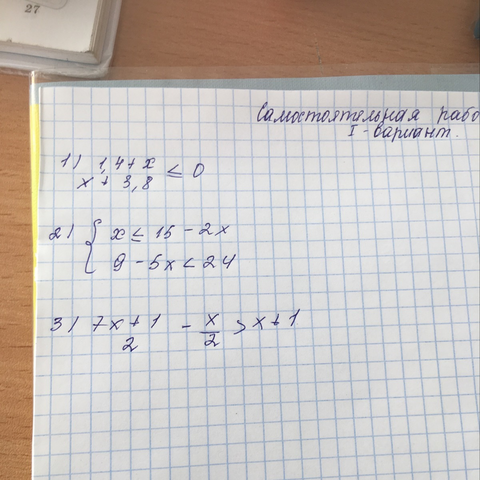 27
Самостоятельная рабо
I - вариант.
1) 1,4 + x
x + 3,8 ≤ 0
2) { x ≤ 15 - 2x
9 - 5x < 24
3) 7x + 1 - x > x + 1
2 2